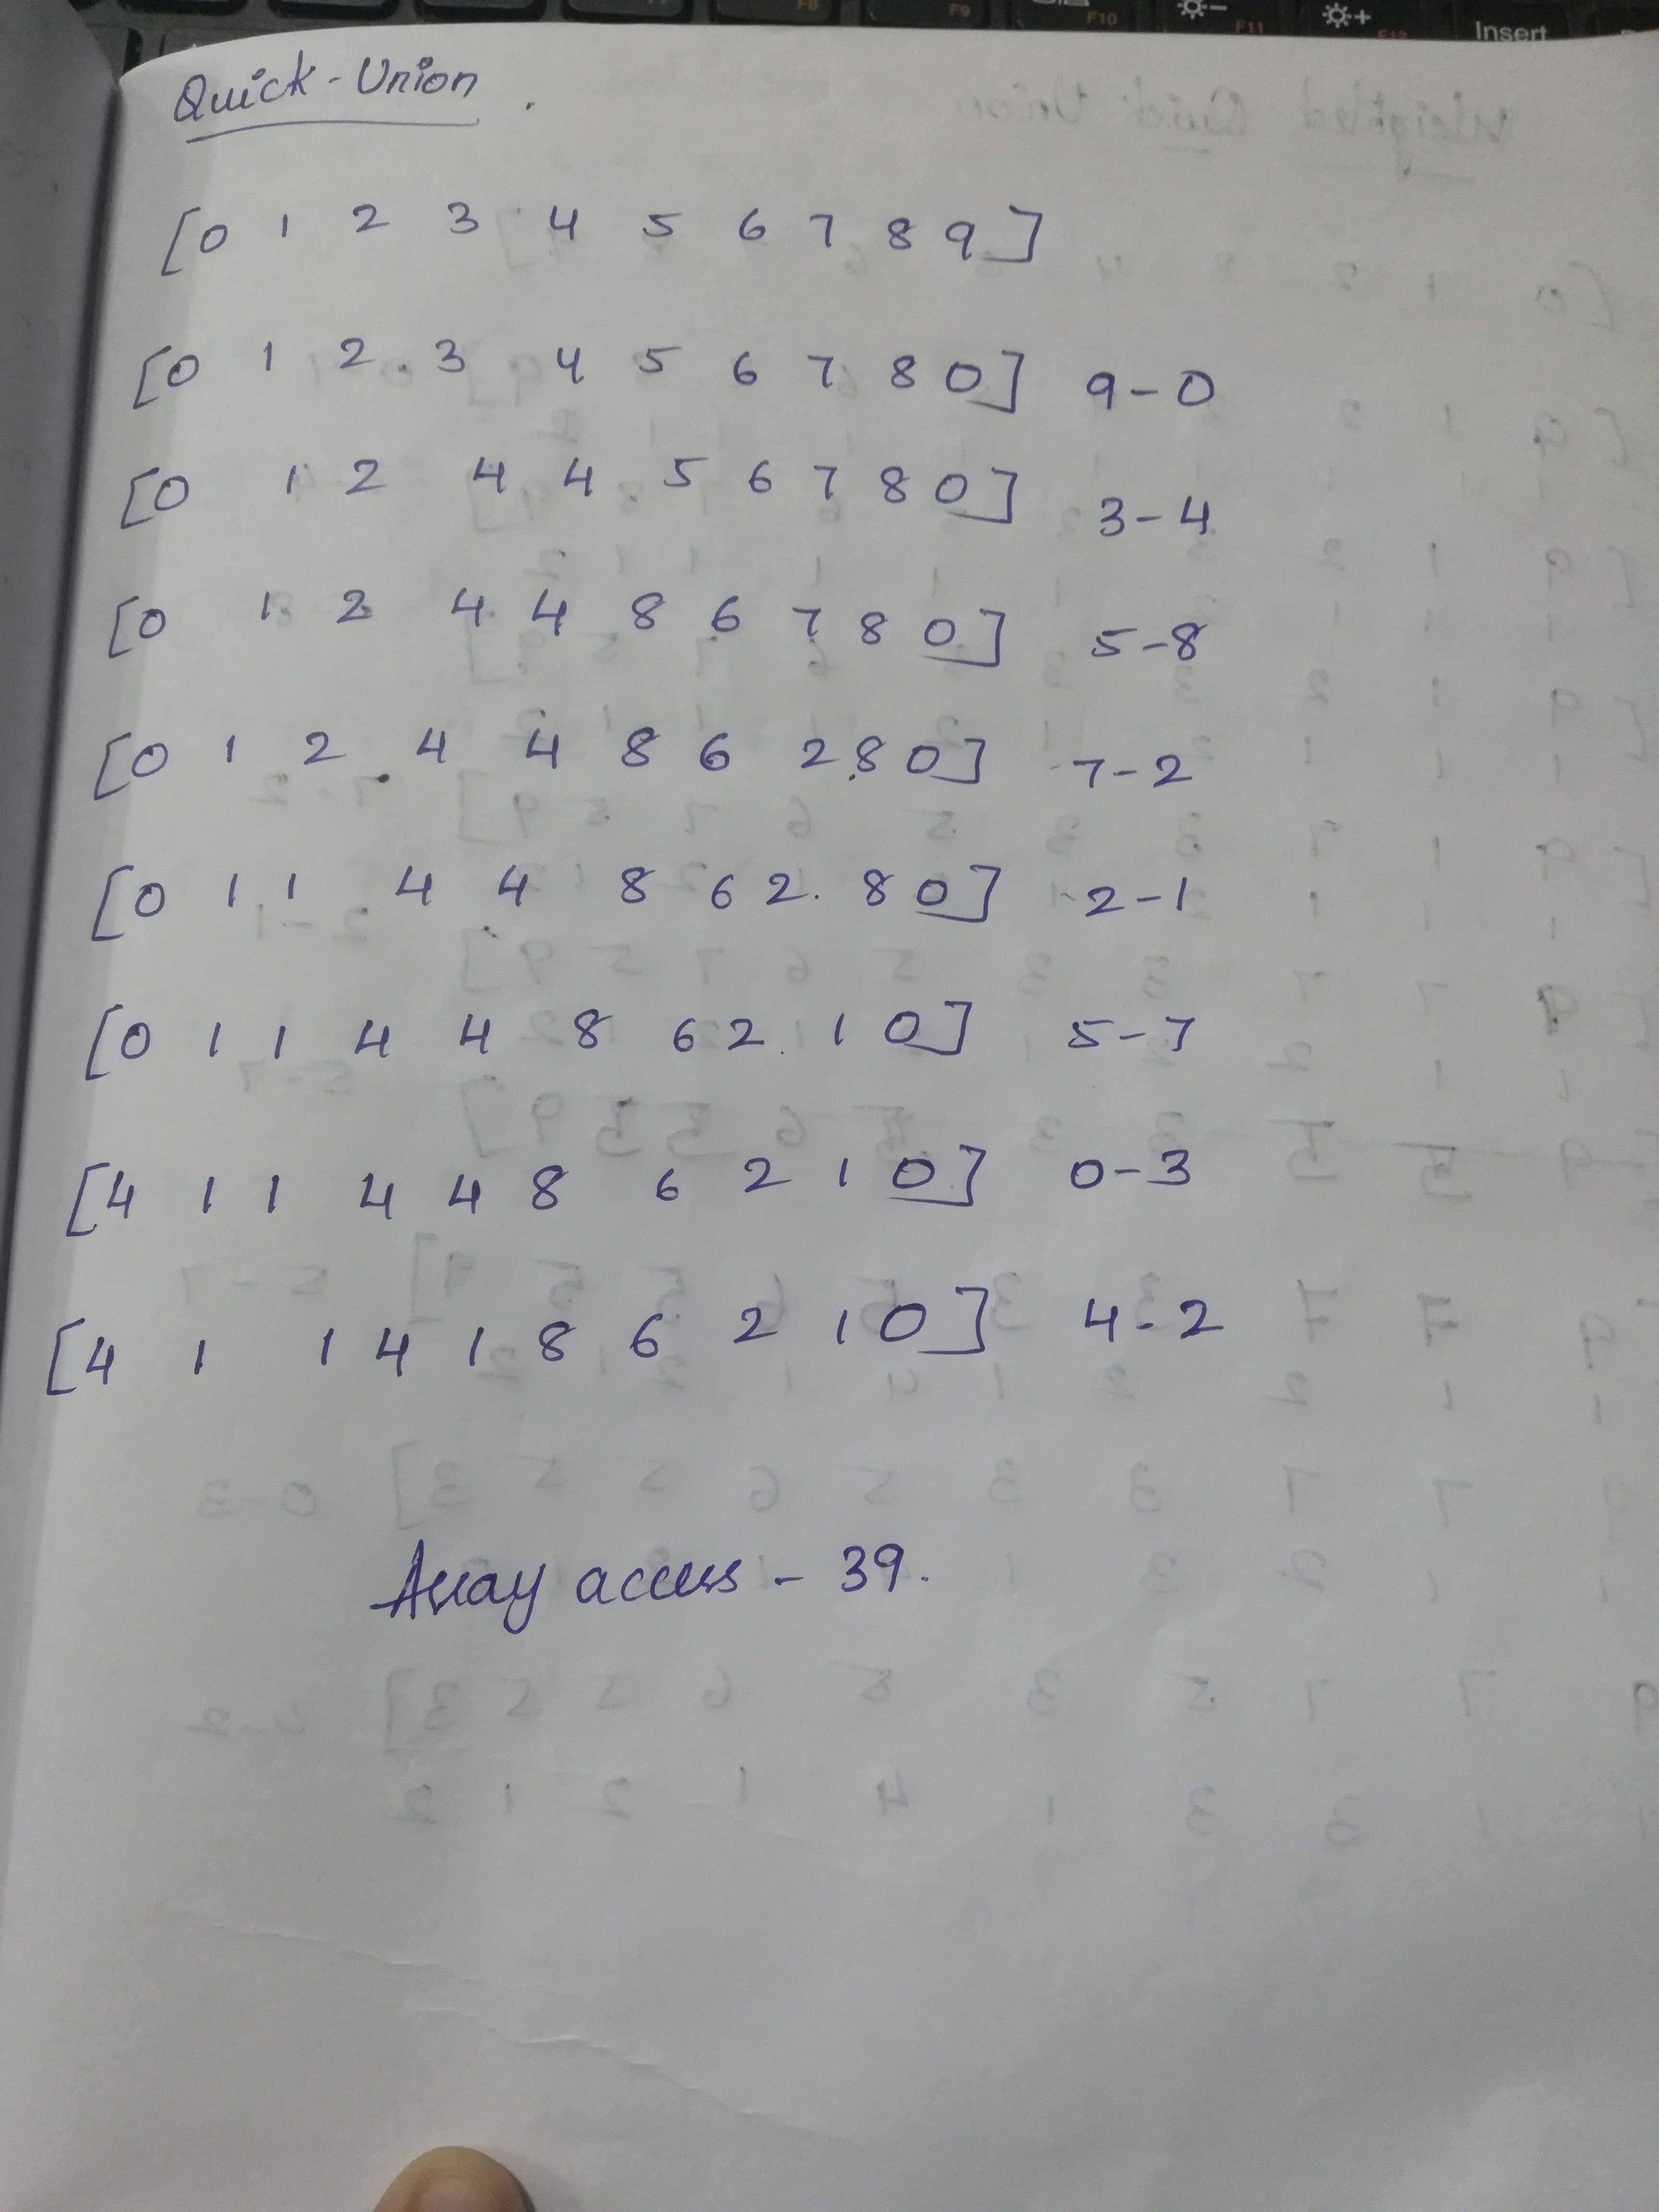 F8 F9 F10 F11 F12 Insert
Quick-Union .
[0 1 2 3 4 5 6 7 8 9]
[0 1 2 3 4 5 6 7 8 0] 9-0
[0 1 2 4 4 5 6 7 8 0] 3-4
[0 1 2 4 4 8 6 7 8 0] 5-8
[0 1 2 4 4 8 6 2 8 0] 7-2
[0 1 1 4 4 8 6 2 8 0] 2-1
[0 1 1 4 4 8 6 2 1 0] 5-7
[4 1 1 4 4 8 6 2 1 0] 0-3
[4 1 1 4 1 8 6 2 1 0] 4-2
Array access - 39.